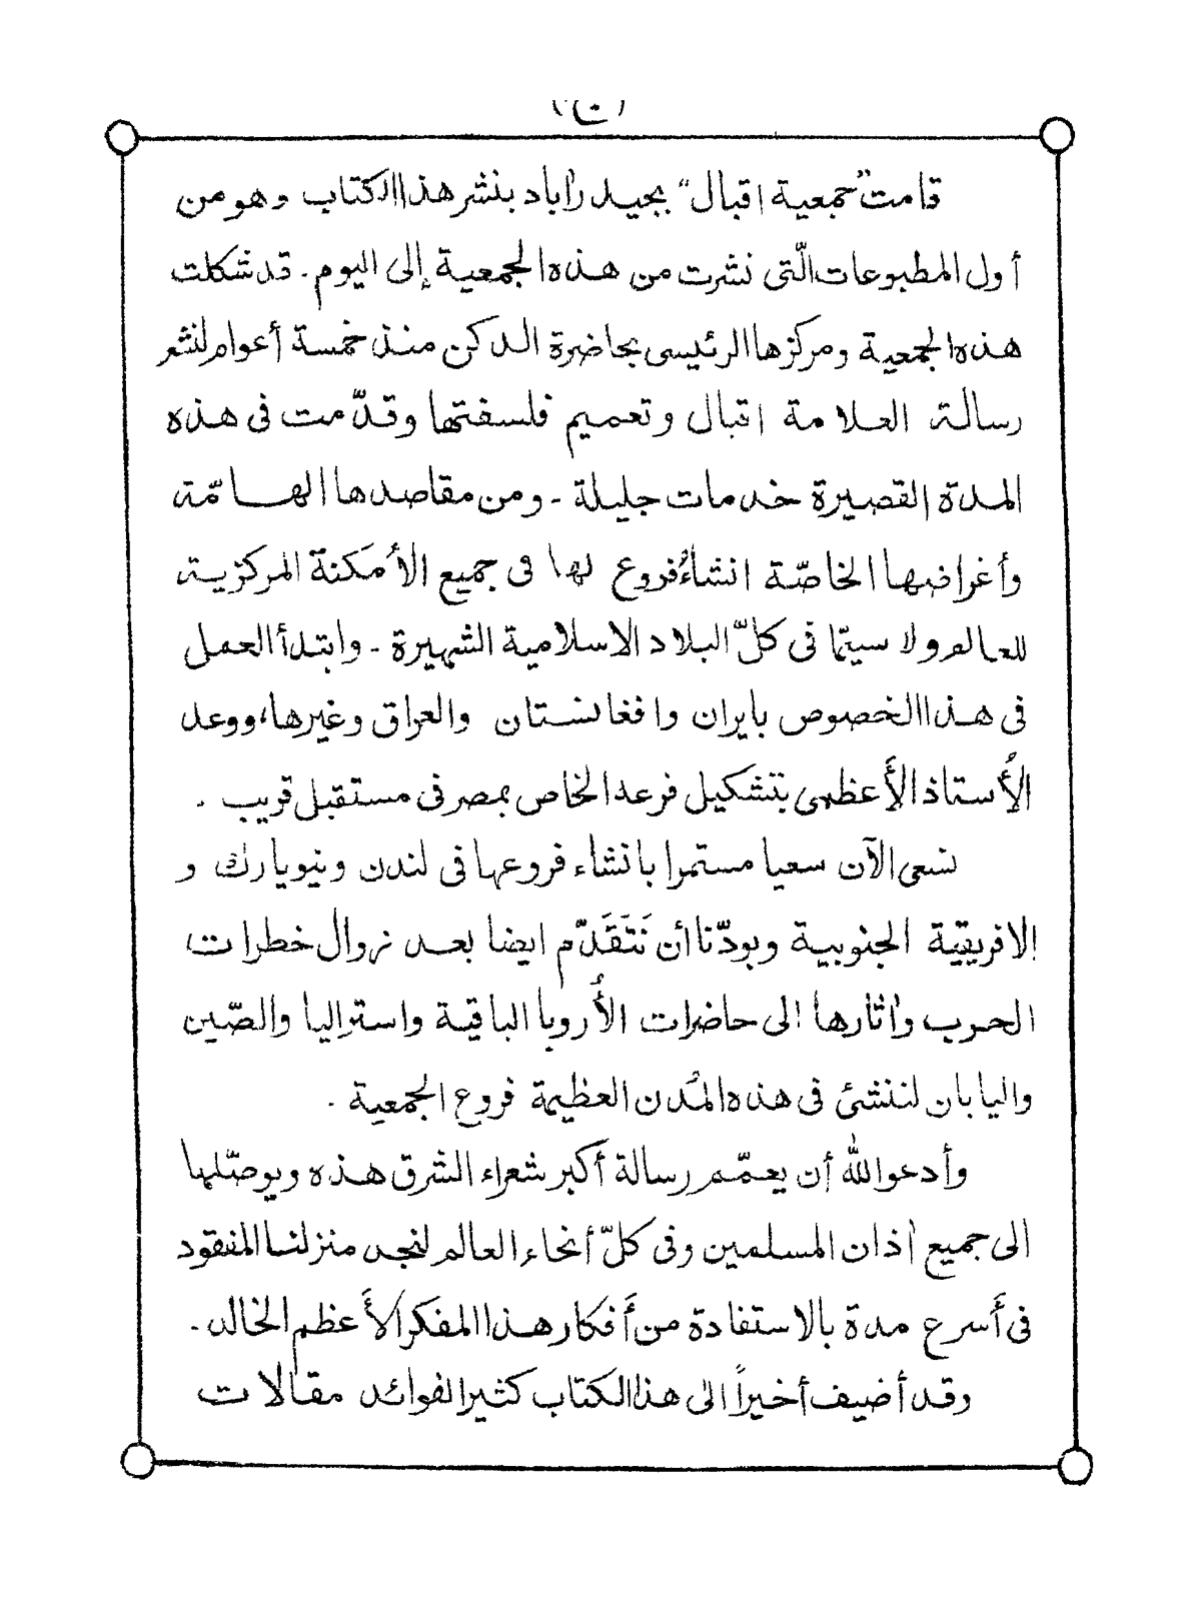 قامت "جمعية اقبال" بحيدراباد بنشر هذا الكتاب وهو من
أول المطبوعات الّتى نشرت من هذه الجمعية إلى اليوم. قد شكلت
هذه الجمعية ومركزها الرئيسى بحاضرة الدكن منذ خمسة أعوام لنشر
رسالة العلامة اقبال وتعميم فلسفتها وقدّمت فى هذه
المدة القصيرة خدمات جليلة - ومن مقاصدها الهامّة
وأغراضها الخاصّة انشاءُ فروع لها فى جميع الأَمكنة المركزية
للعالم ولا سيتّما فى كلّ البلاد الاسلامية الشهيرة - وابتدأ العمل
فى هذا الخصوص بايران وافغانستان والعراق وغيرها، ووعد
الأُستاذ الأَعظمى بتشكيل فرعه الخاص بمصر فى مستقبل قريب .
نسعى الآن سعيا مستمرا بانشاء فروعها فى لندن ونيويارك و
الافريقية الجنوبية وبودّنا أن نَتَقَدّم ايضا بعد زوال خطرات
الحرب واثارها الى حاضرات الأُروبا الباقية واستراليا والصّين
واليابان لننشئ فى هذه المُدن العظيمة فروع الجمعية .
وأدعو الله أن يعمّم رسالة أكبر شعراء الشرق هذه ويوصّلها
الى جميع اذان المسلمين وفى كلّ أنحاء العالم لنجد منزلنا المفقود
فى أَسرع مدة بالاستفادة من أَفكار هذا المفكر الأَعظم الخالد .
وقد أضيف أخيراً الى هذا الكتاب كثير الفوائد مقالات